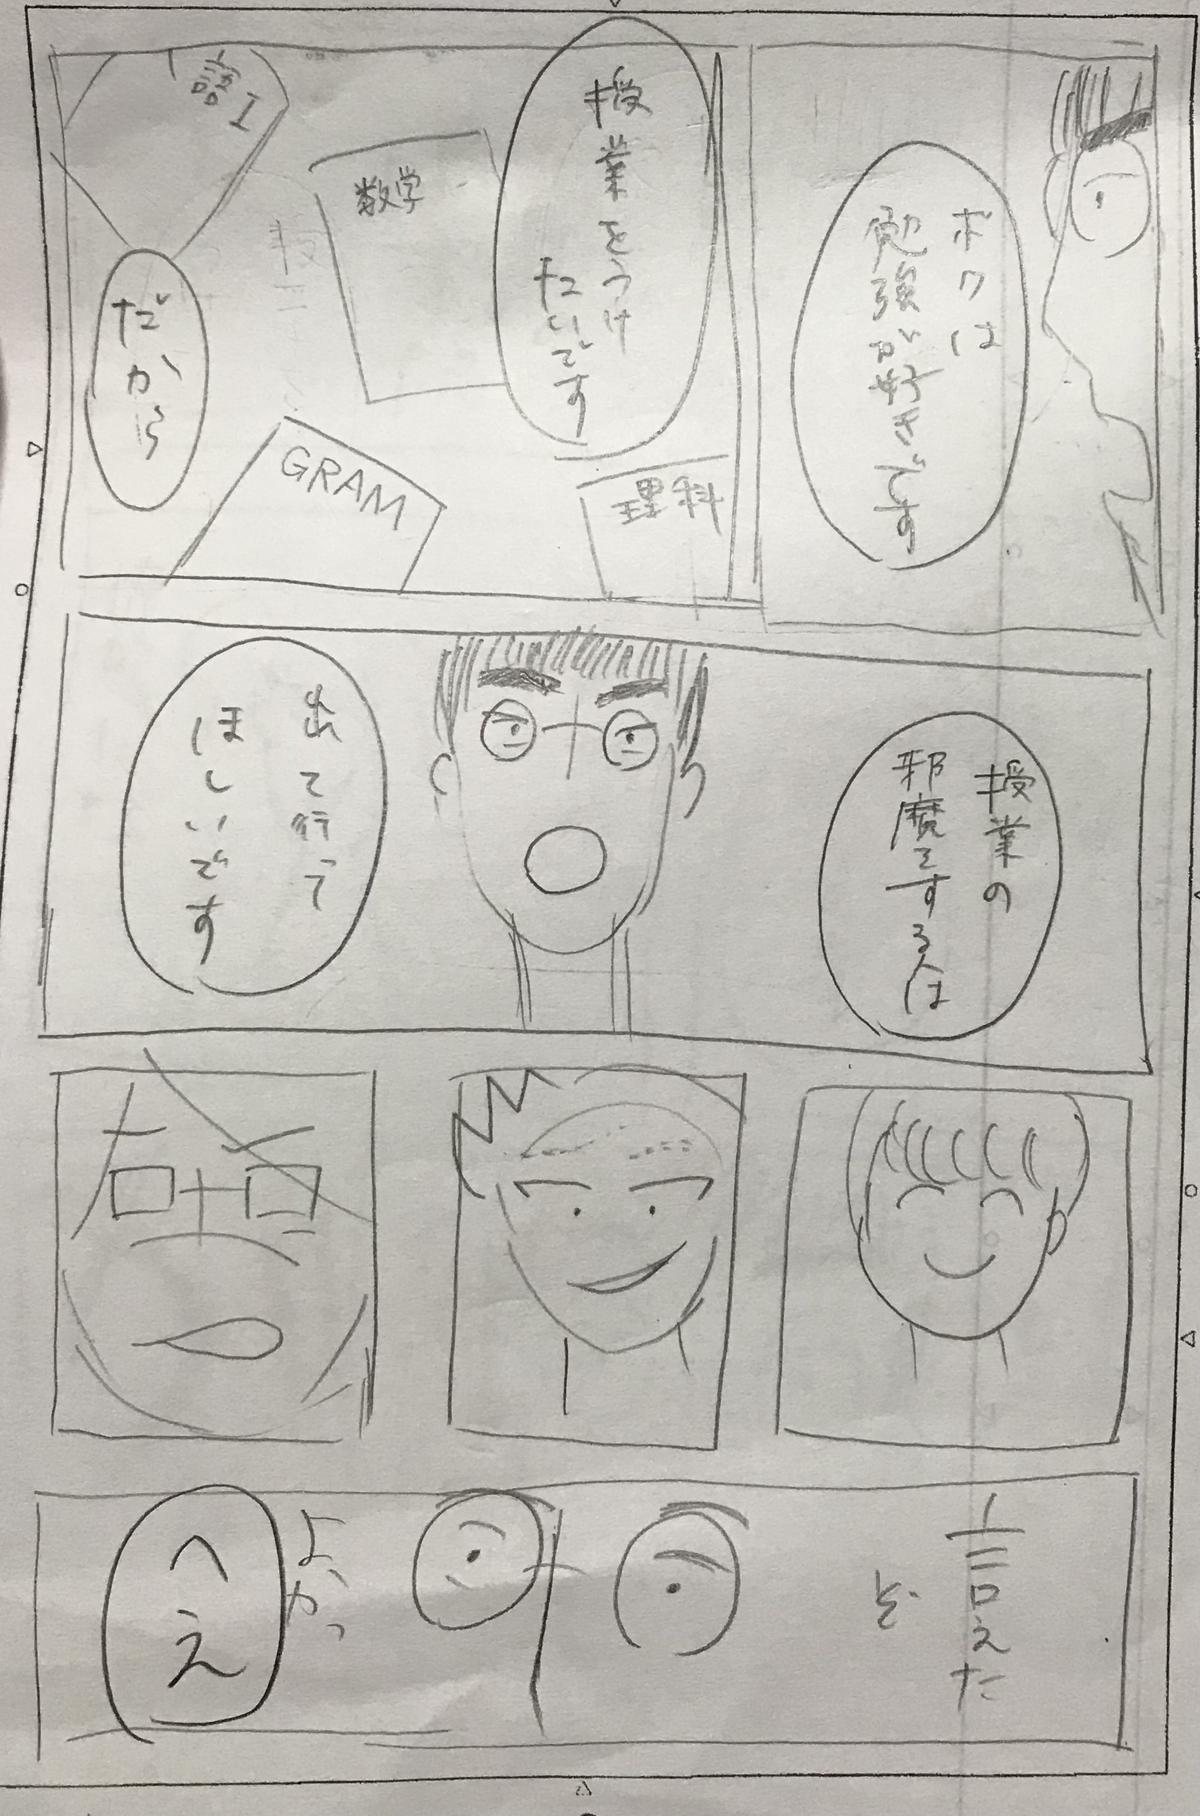 ボクは
勉強が好きです
授業をうけ
たいです
数学
理科
GRAM
語I
だから
授業の
邪魔をする人は
出て行って
ほしいです
言えた
ぞ
よかっ
へえ